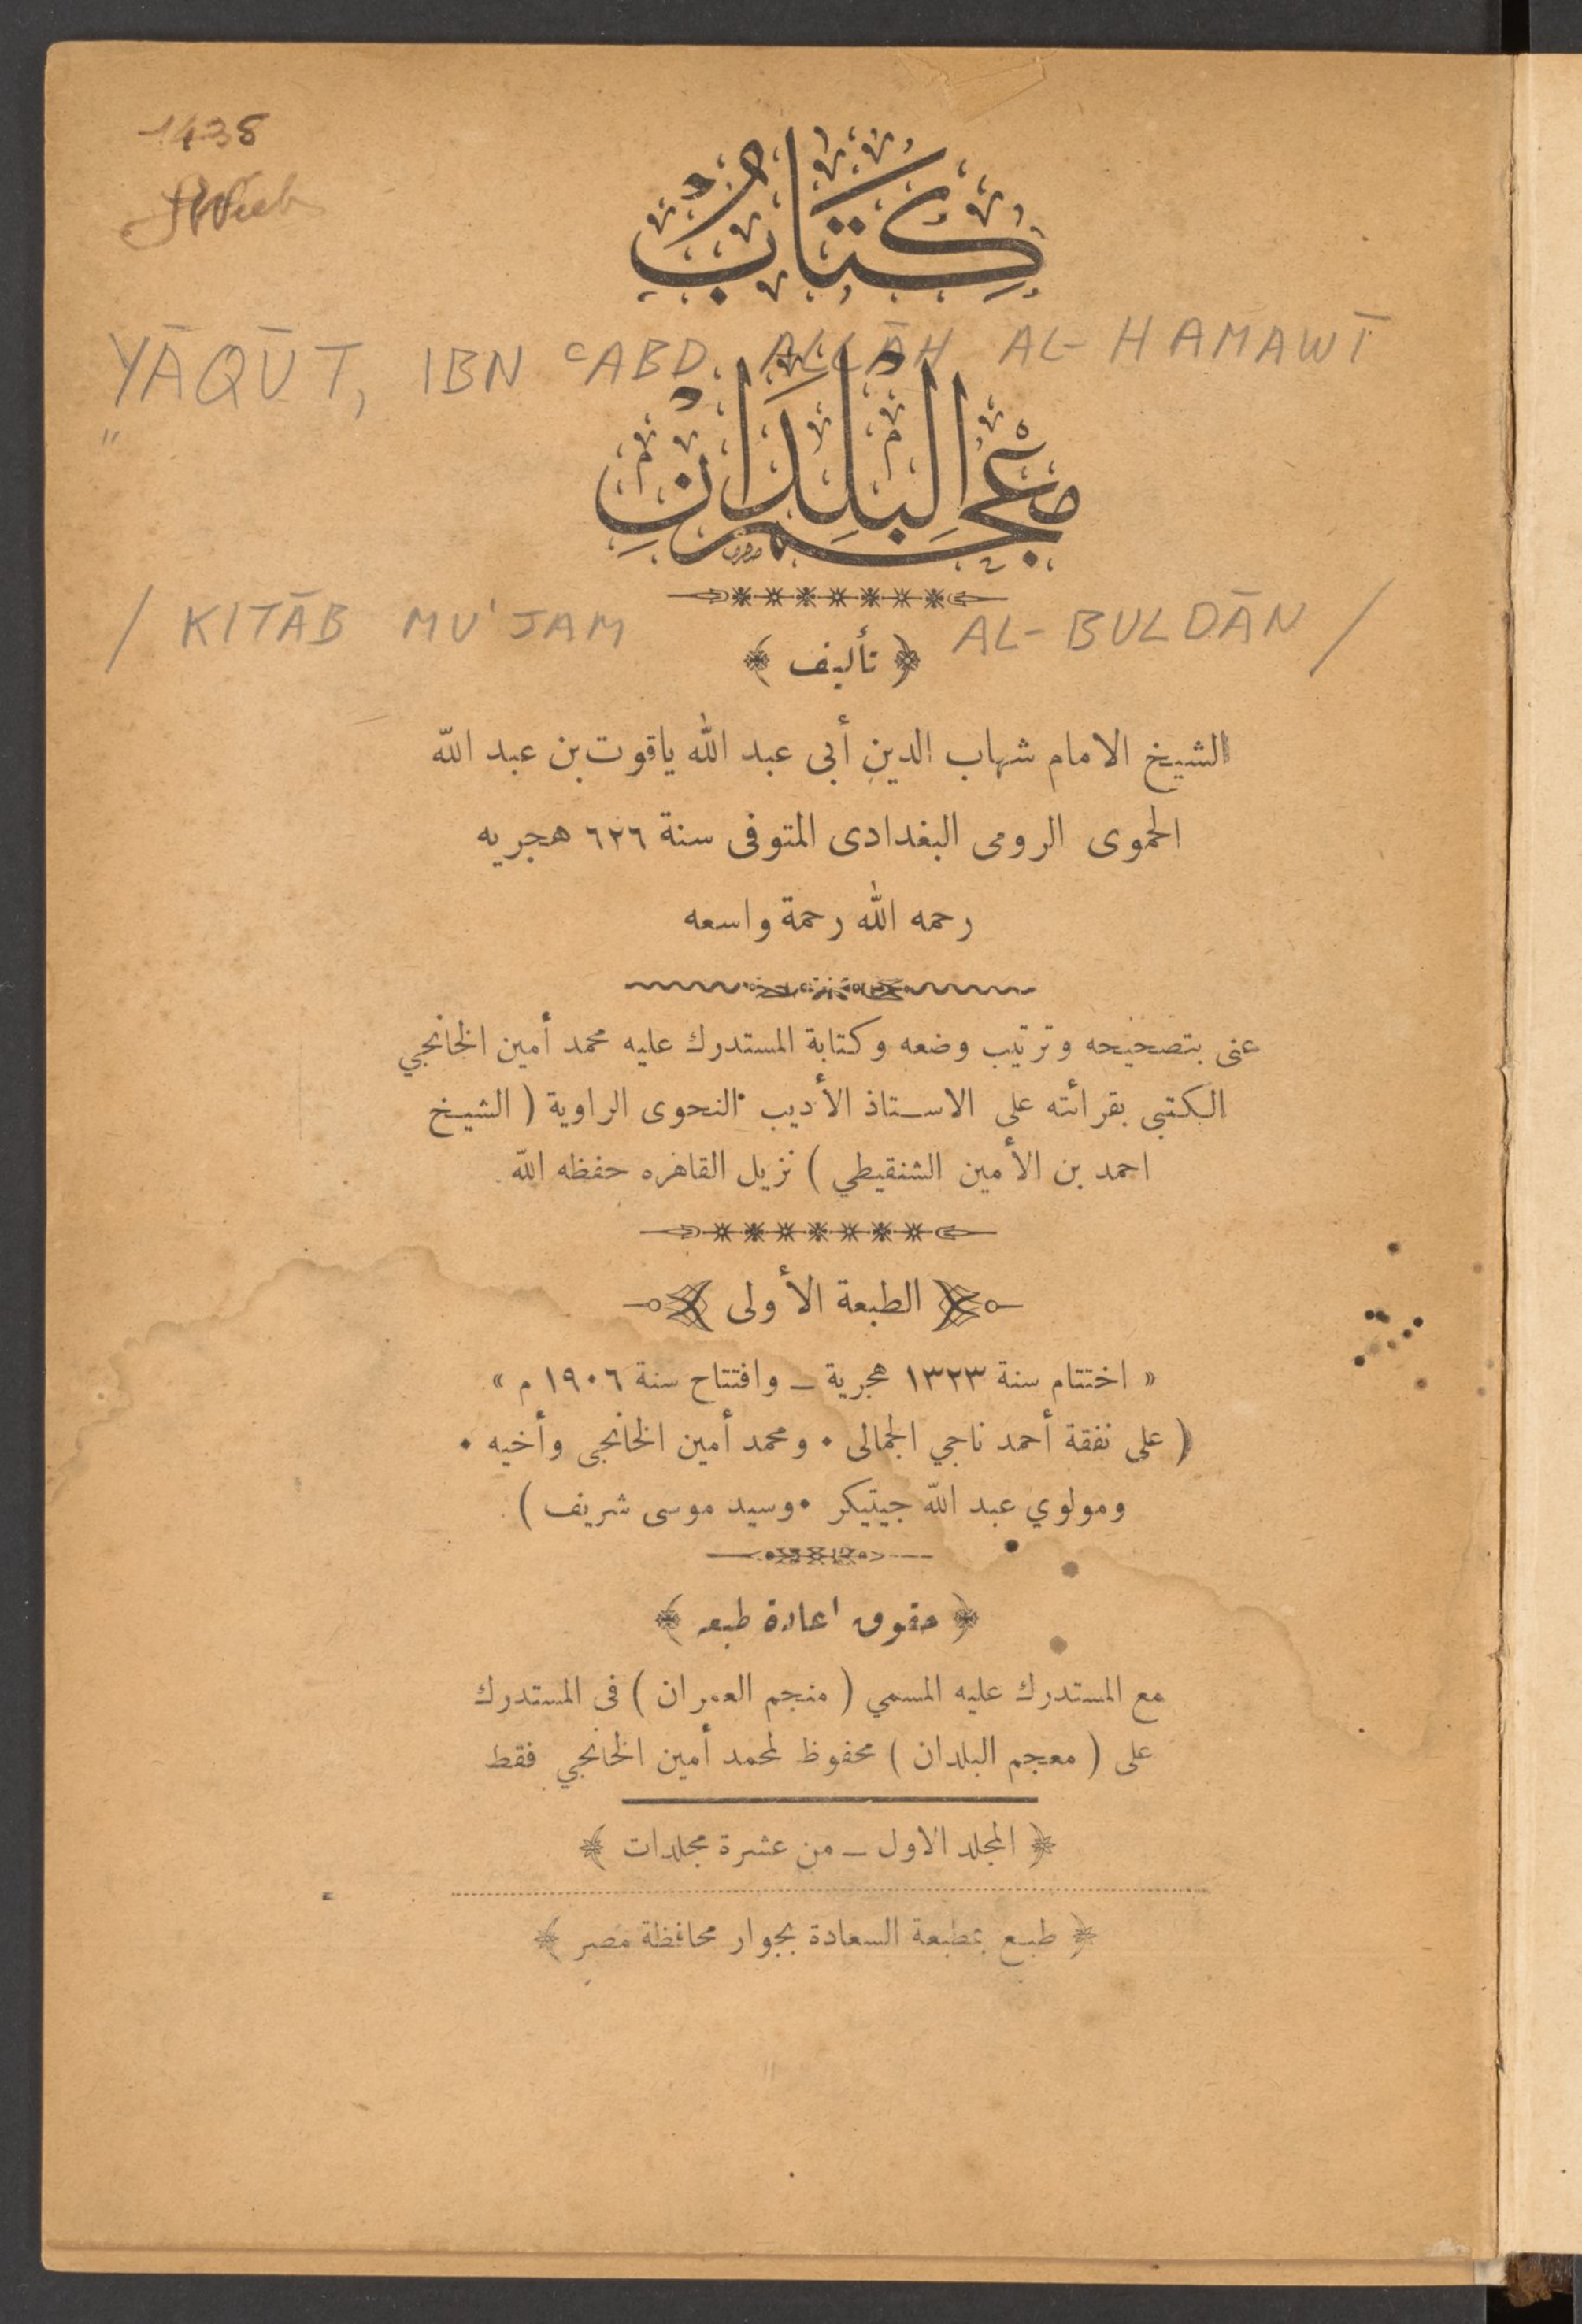 1438
كِتَابُ
YĀQŪT, IBN ʿABD ALLĀH AL-HAMAWĪ
مُعْجَمِ البُلْدَانِ
/ KITĀB MU'JAM AL-BULDĀN /
﴿ تأليف ﴾
الشيخ الامام شهاب الدين أبى عبد الله ياقوت بن عبد الله
الحموى الرومى البغدادى المتوفى سنة ٦٢٦ هجريه
رحمه الله رحمة واسعه
عنى بتصحيحه وترتيب وضعه وكتابة المستدرك عليه محمد أمين الخانجي
الكتبى بقرائته على الاستاذ الأديب النحوى الراوية ( الشيخ
احمد بن الأمين الشنقيطي ) نزيل القاهره حفظه الله
الطبعة الأولى
« اختتام سنة ١٣٢٣ هجرية ــ وافتتاح سنة ١٩٠٦ م »
( على نفقة أحمد ناجي الجمالى ۰ ومحمد أمين الخانجى وأخيه ۰
ومولوي عبد الله جيتيكر ۰ وسيد موسى شريف )
﴿ حقوق اعادة طبعه ﴾
مع المستدرك عليه المسمي ( منجم العمران ) فى المستدرك
على ( معجم البلدان ) محفوظ لمحمد أمين الخانجي فقط
﴿ المجلد الاول ــ من عشرة مجلدات ﴾
﴿ طبع بمطبعة السعادة بجوار محافظة مصر ﴾